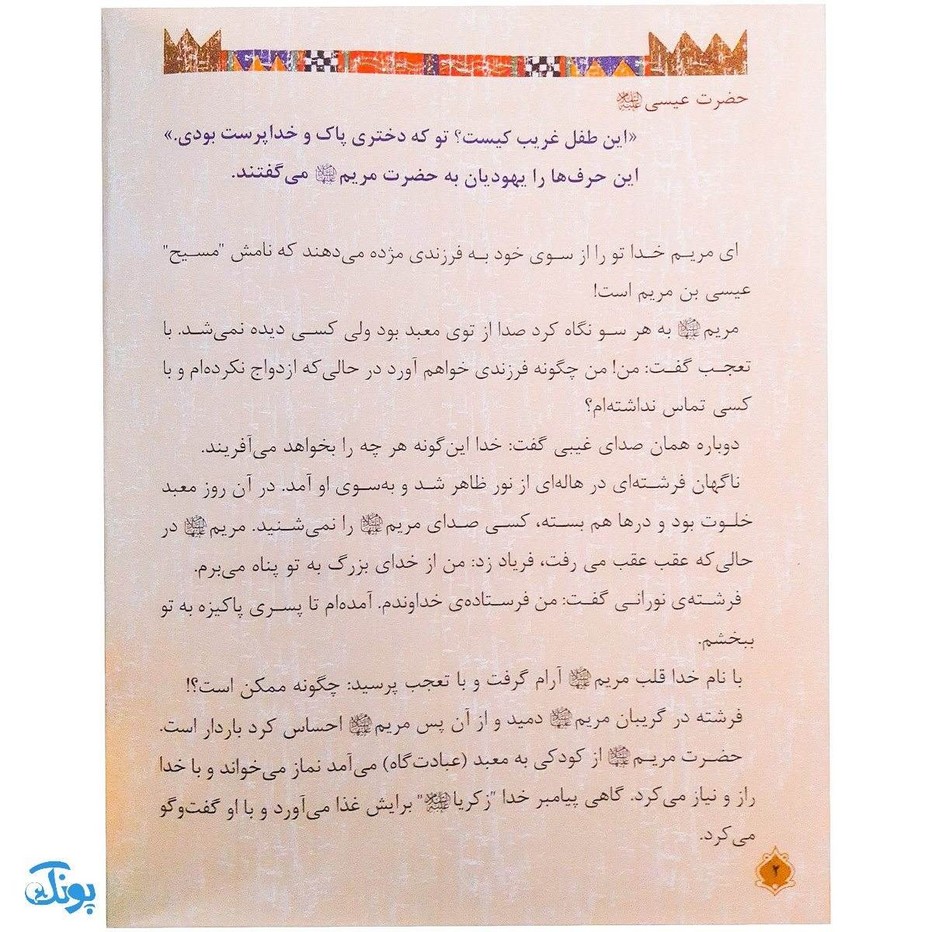 حضرت عیسی علیه‌السلام
«این طفل غریب کیست؟ تو که دختری پاک و خداپرست بودی.»
این حرف‌ها را یهودیان به حضرت مریم می‌گفتند.
ای مریم خدا تو را از سوی خود به فرزندی مژده می‌دهند که نامش "مسیح"
عیسی بن مریم است!
مریم به هر سو نگاه کرد صدا از توی معبد بود ولی کسی دیده نمی‌شد. با
تعجب گفت: من! من چگونه فرزندی خواهم آورد در حالی‌که ازدواج نکرده‌ام و با
کسی تماس نداشته‌ام؟
دوباره همان صدای غیبی گفت: خدا این‌گونه هر چه را بخواهد می‌آفریند.
ناگهان فرشته‌ای در هاله‌ای از نور ظاهر شد و به‌سوی او آمد. در آن روز معبد
خلوت بود و درها هم بسته، کسی صدای مریم را نمی‌شنید. مریم در
حالی‌که عقب عقب می رفت، فریاد زد: من از خدای بزرگ به تو پناه می‌برم.
فرشته‌ی نورانی گفت: من فرستاده‌ی خداوندم. آمده‌ام تا پسری پاکیزه به تو
ببخشم.
با نام خدا قلب مریم آرام گرفت و با تعجب پرسید: چگونه ممکن است؟!
فرشته در گریبان مریم دمید و از آن پس مریم احساس کرد باردار است.
حضرت مریم از کودکی به معبد (عبادت‌گاه) می‌آمد نماز می‌خواند و با خدا
راز و نیاز می‌کرد. گاهی پیامبر خدا "زکریا" برایش غذا می‌آورد و با او گفت‌وگو
می‌کرد.
۲
پونک